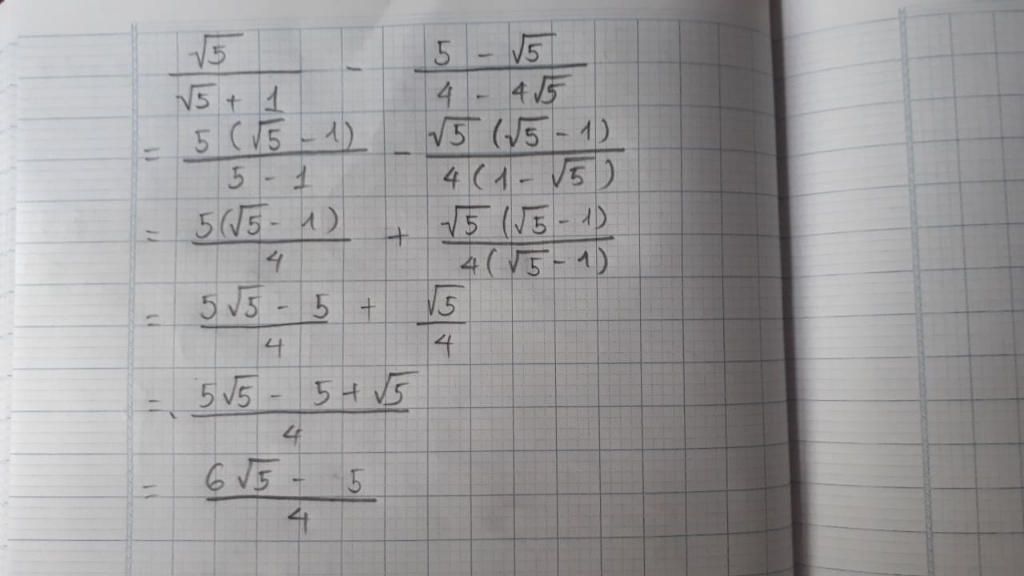 √5/(√5 + 1) - (5 - √5)/(4 - 4√5)
= 5(√5 - 1)/(5 - 1) - √5(√5 - 1)/(4(1 - √5))
= 5(√5 - 1)/4 + √5(√5 - 1)/(4(√5 - 1))
= (5√5 - 5)/4 + √5/4
= (5√5 - 5 + √5)/4
= (6√5 - 5)/4